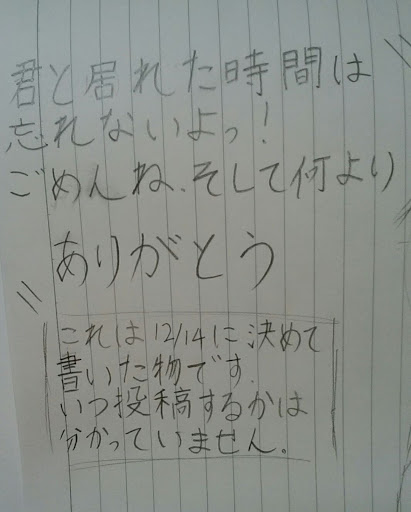 君と居れた時間は
忘れないよっ!
ごめんね、そして何より
ありがとう
これは12/14に決めて
書いた物です.
いつ投稿するかは
分かっていません。